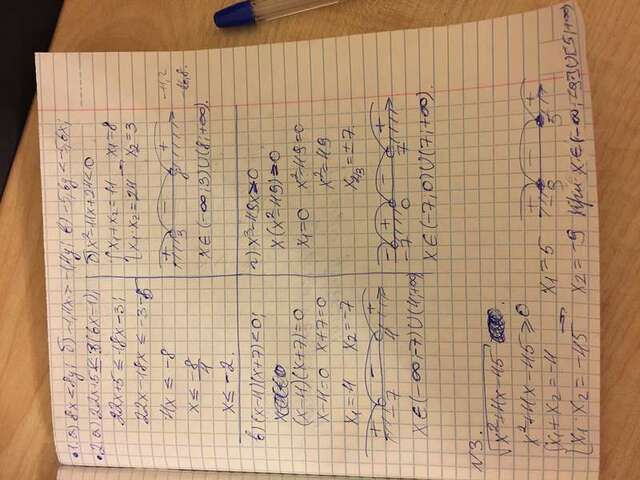 1. а) 8x<8y; б) -1,4x>-1,4y; в) -5,6y<-5,6x;
2. а) 22x+5≤3(6x-1);
22x+5≤18x-3;
22x-18x≤-3-5
4x≤-8
x≤-8/4
x≤-2.
б) x²-11x+24<0
{x₁+x₂=11
{x₁·x₂=24
x₁=8
x₂=3
+ - +
3 8
x∈(-∞;3)∪(8;+∞).
в) (x-4)(x+7)<0;
(x-4)(x+7)=0
x-4=0 x+7=0
x₁=4 x₂=-7
+ - +
-7 4
x∈(-∞;-7)∪(4;+∞)
г) x³-49x>0
x(x²-49)>0
x₁=0 x²-49=0
x²=49
x₂/₃=±7.
- + - +
-7 0 7
x∈(-7;0)∪(7;+∞).
N3.
√x²+4x-45
x²+4x-45≥0
{x₁+x₂=-4 x₁=5
{x₁·x₂=-45 x₂=-9
+ - +
-9 5
При x∈(-∞;-9]∪[5;+∞)